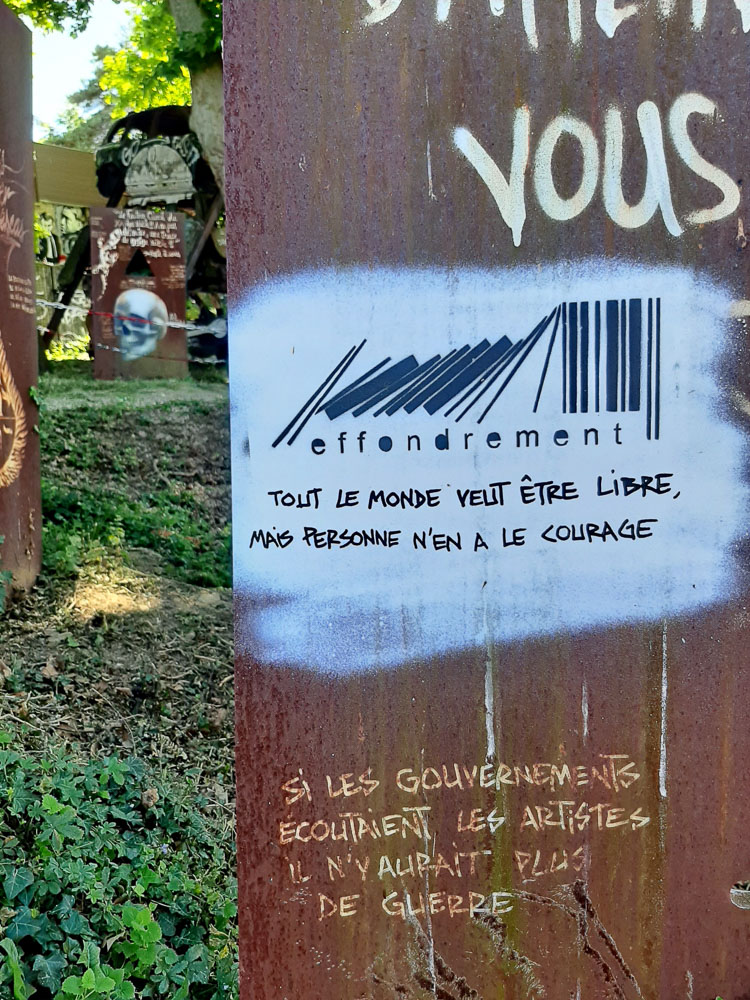 VOUS
effondrement
TOUT LE MONDE VEUT ÊTRE LIBRE,
MAIS PERSONNE N'EN A LE COURAGE
Si LES GOUVERNEMENTS
ÉCOUTAIENT LES ARTISTES
IL N'Y AURAIT PLUS
DE GUERRE